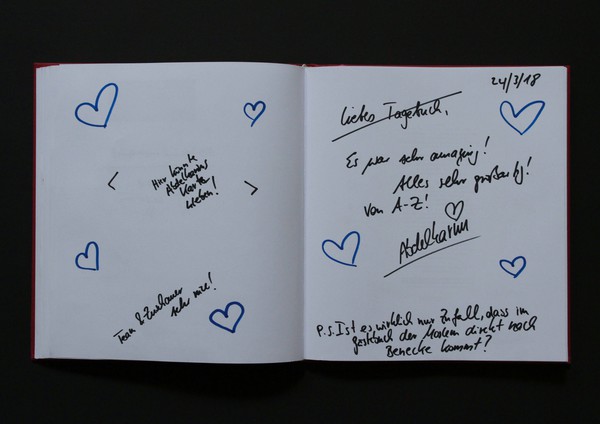 < Hier könnte
Abdelkarims
Karte
kleben! >
Team & Zuschauer
sehr nice!
24/3/18
Liebes Tagebuch,
Es war sehr amazing!
Alles sehr großartig!
Von A-Z!
Abdelkarim
P.S. Ist es wirklich nur Zufall, dass im
Gästebuch der Moslem direkt nach
Benecke kommt?